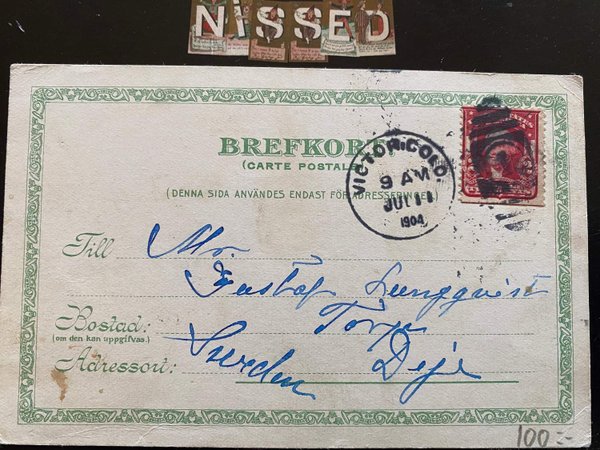 NISSED
BREFKORT
(CARTE POSTALE)
(DENNA SIDA ANVÄNDES ENDAST FÖR ADRESSERINGEN)
VICTOR, COLO.
9 AM
JUL 11
1904
Till Mr.
Gustaf Lungqvist
Bostad: Torp
(om den kan uppgifvas.)
Adressort: Sweden Deje
100:-